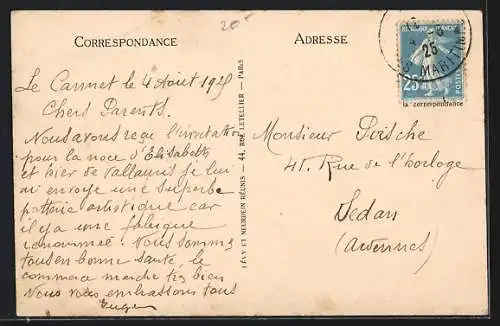 20
CORRESPONDANCE
ADRESSE
Le Cannet le 4 Août 1925
Chers Parents.
Nous avons reçu l'invitation
pour la noce d'Elisabeth
et hier de Vallauris je lui
ai envoyé une superbe
potterie artistique car
il y a une fabrique
renommée. Nous sommes
tous en bonne santé, le
commerce marche très bien
Nous vous embrassons tous
LÉVY ET NEURDEIN RÉUNIS — 44, RUE LETELLIER — PARIS
Monsieur Poische
45 Rue de l'horloge
Sedan
(Ardennes)
25
MARITIM
25
POSTES
la correspondance